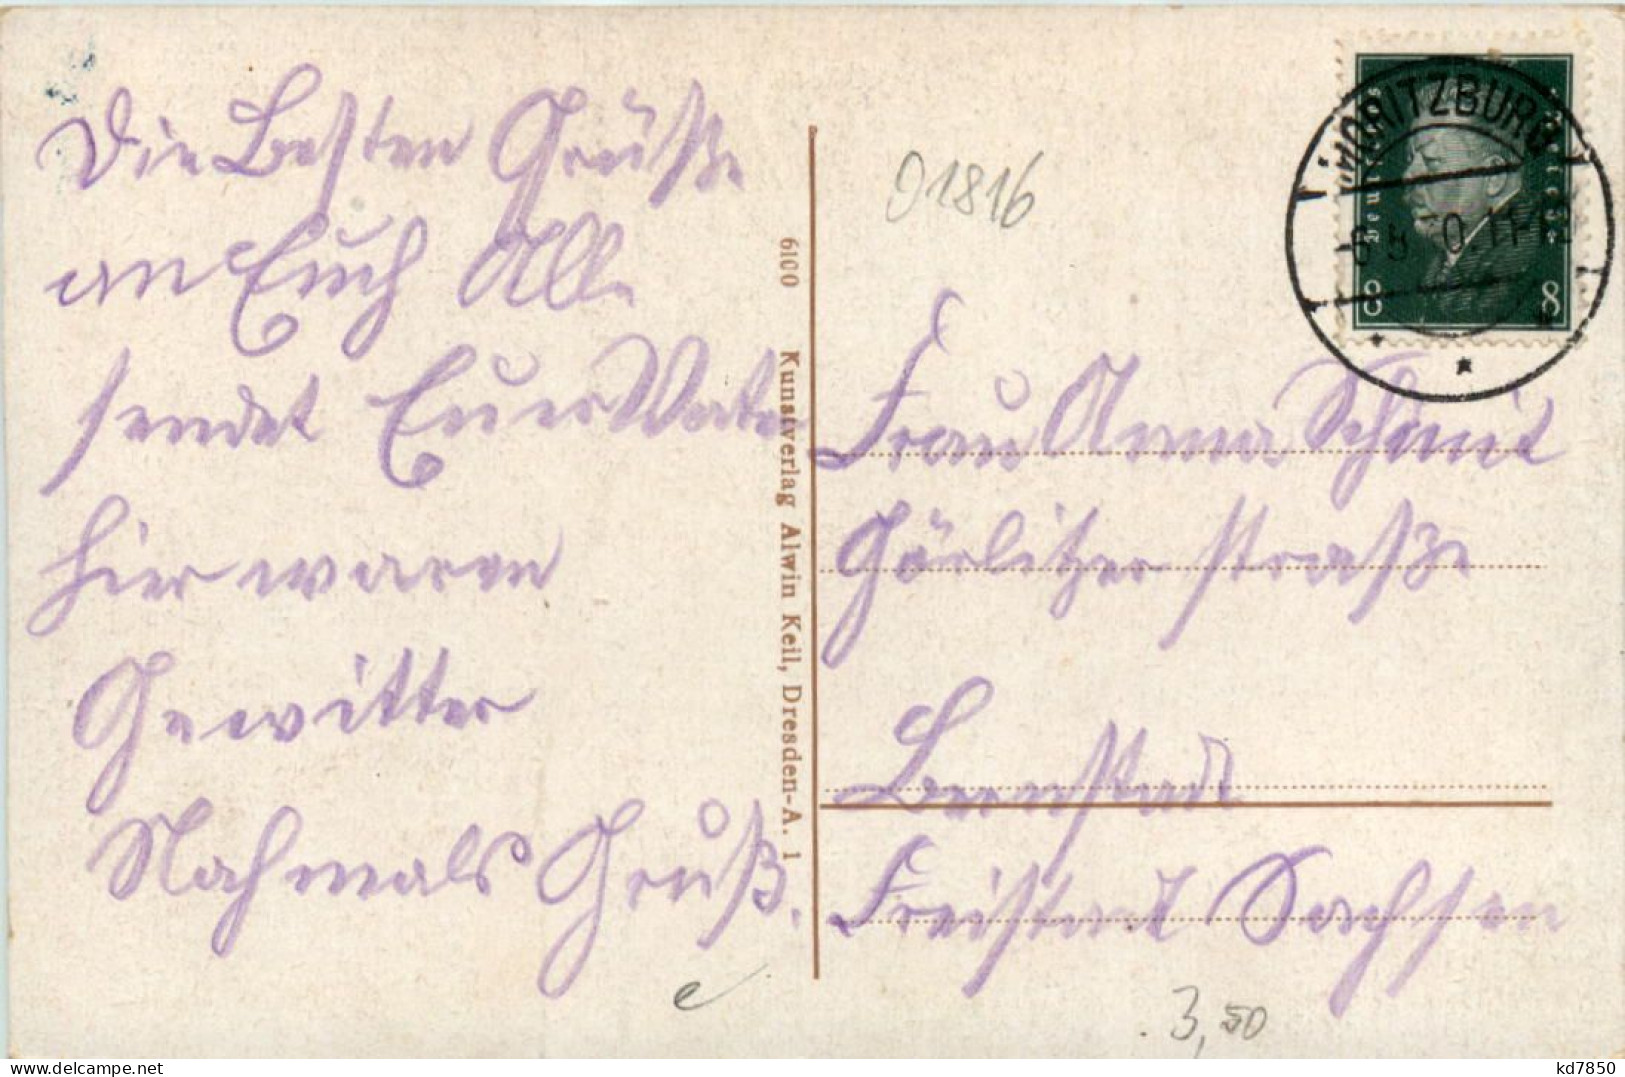 Die Besten Grüße
an Euch All.
sendet Euer Vater
hier waren
Gewitter
Nachmals Gruß.
6100 Kunstverlag Alwin Keil, Dresden-A. 1
01816
MORITZBURG
8 8
Frau Anna Schmid
Görlitzer straße
Bernstadt
Freistaat Sachsen
3,50
delcampe.net
kd7850